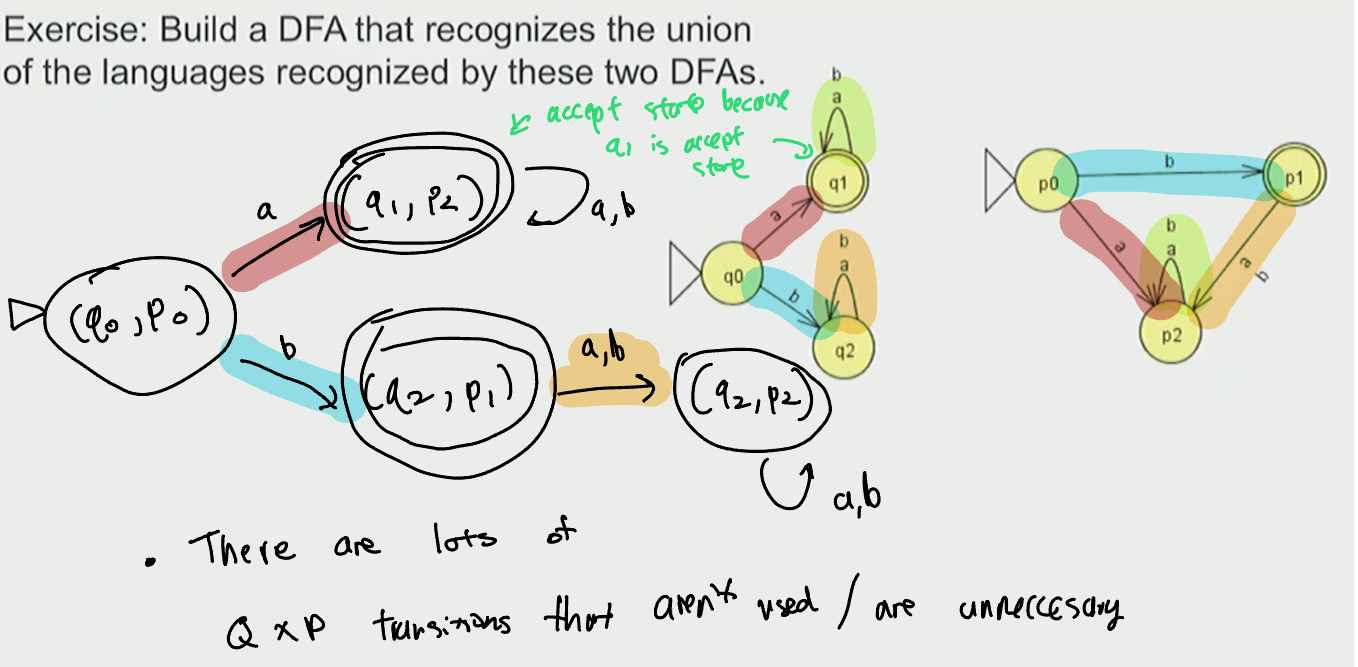 Exercise: Build a DFA that recognizes the union
of the languages recognized by these two DFAs.
accept state because
q1 is accept
state
(q0, p0)
a
(q1, p2)
a,b
b
(q2, p1)
a,b
(q2, p2)
a,b
b
a
q1
a
q0
b
b
a
q2
p0
b
p1
a
b
a
a
b
p2
• There are lots of
Q x P transitions that aren't used / are unneccesary